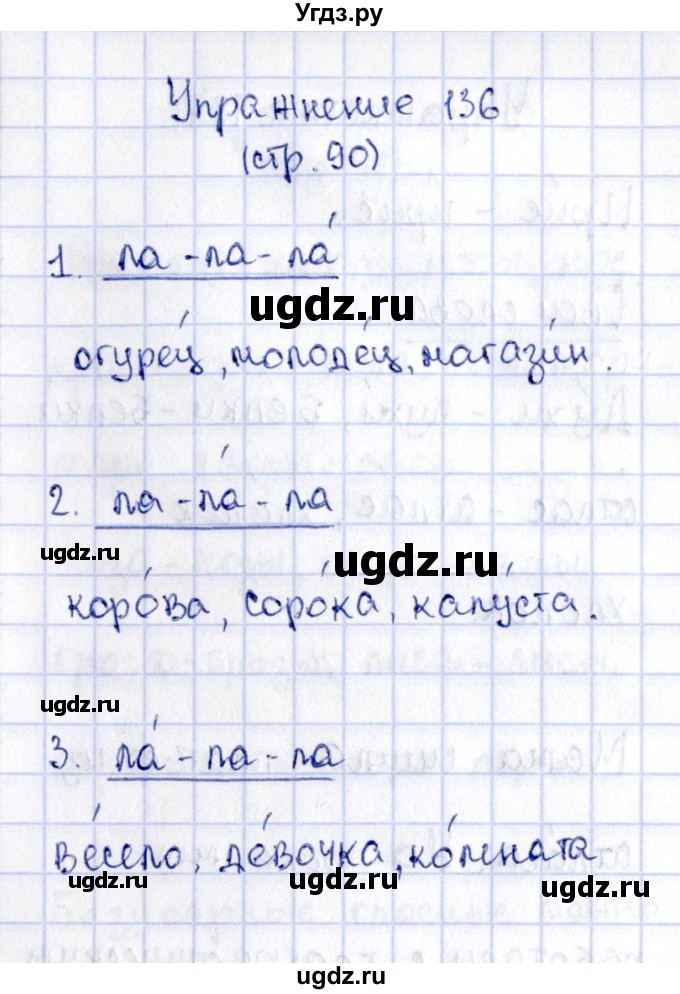 Угдз.ру
Упражнение 136
(стр. 90)
1. ла - ла - ла́
огуре́ц, молоде́ц, магази́н.
2. ла - ла́ - ла
коро́ва, соро́ка, капу́ста.
3. ла́ - ла - ла
ве́село, де́вочка, ко́мната
ugdz.ru
ugdz.ru
ugdz.ru
ugdz.ru
ugdz.ru
ugdz.ru
ugdz.ru
ugdz.ru
ugdz.ru